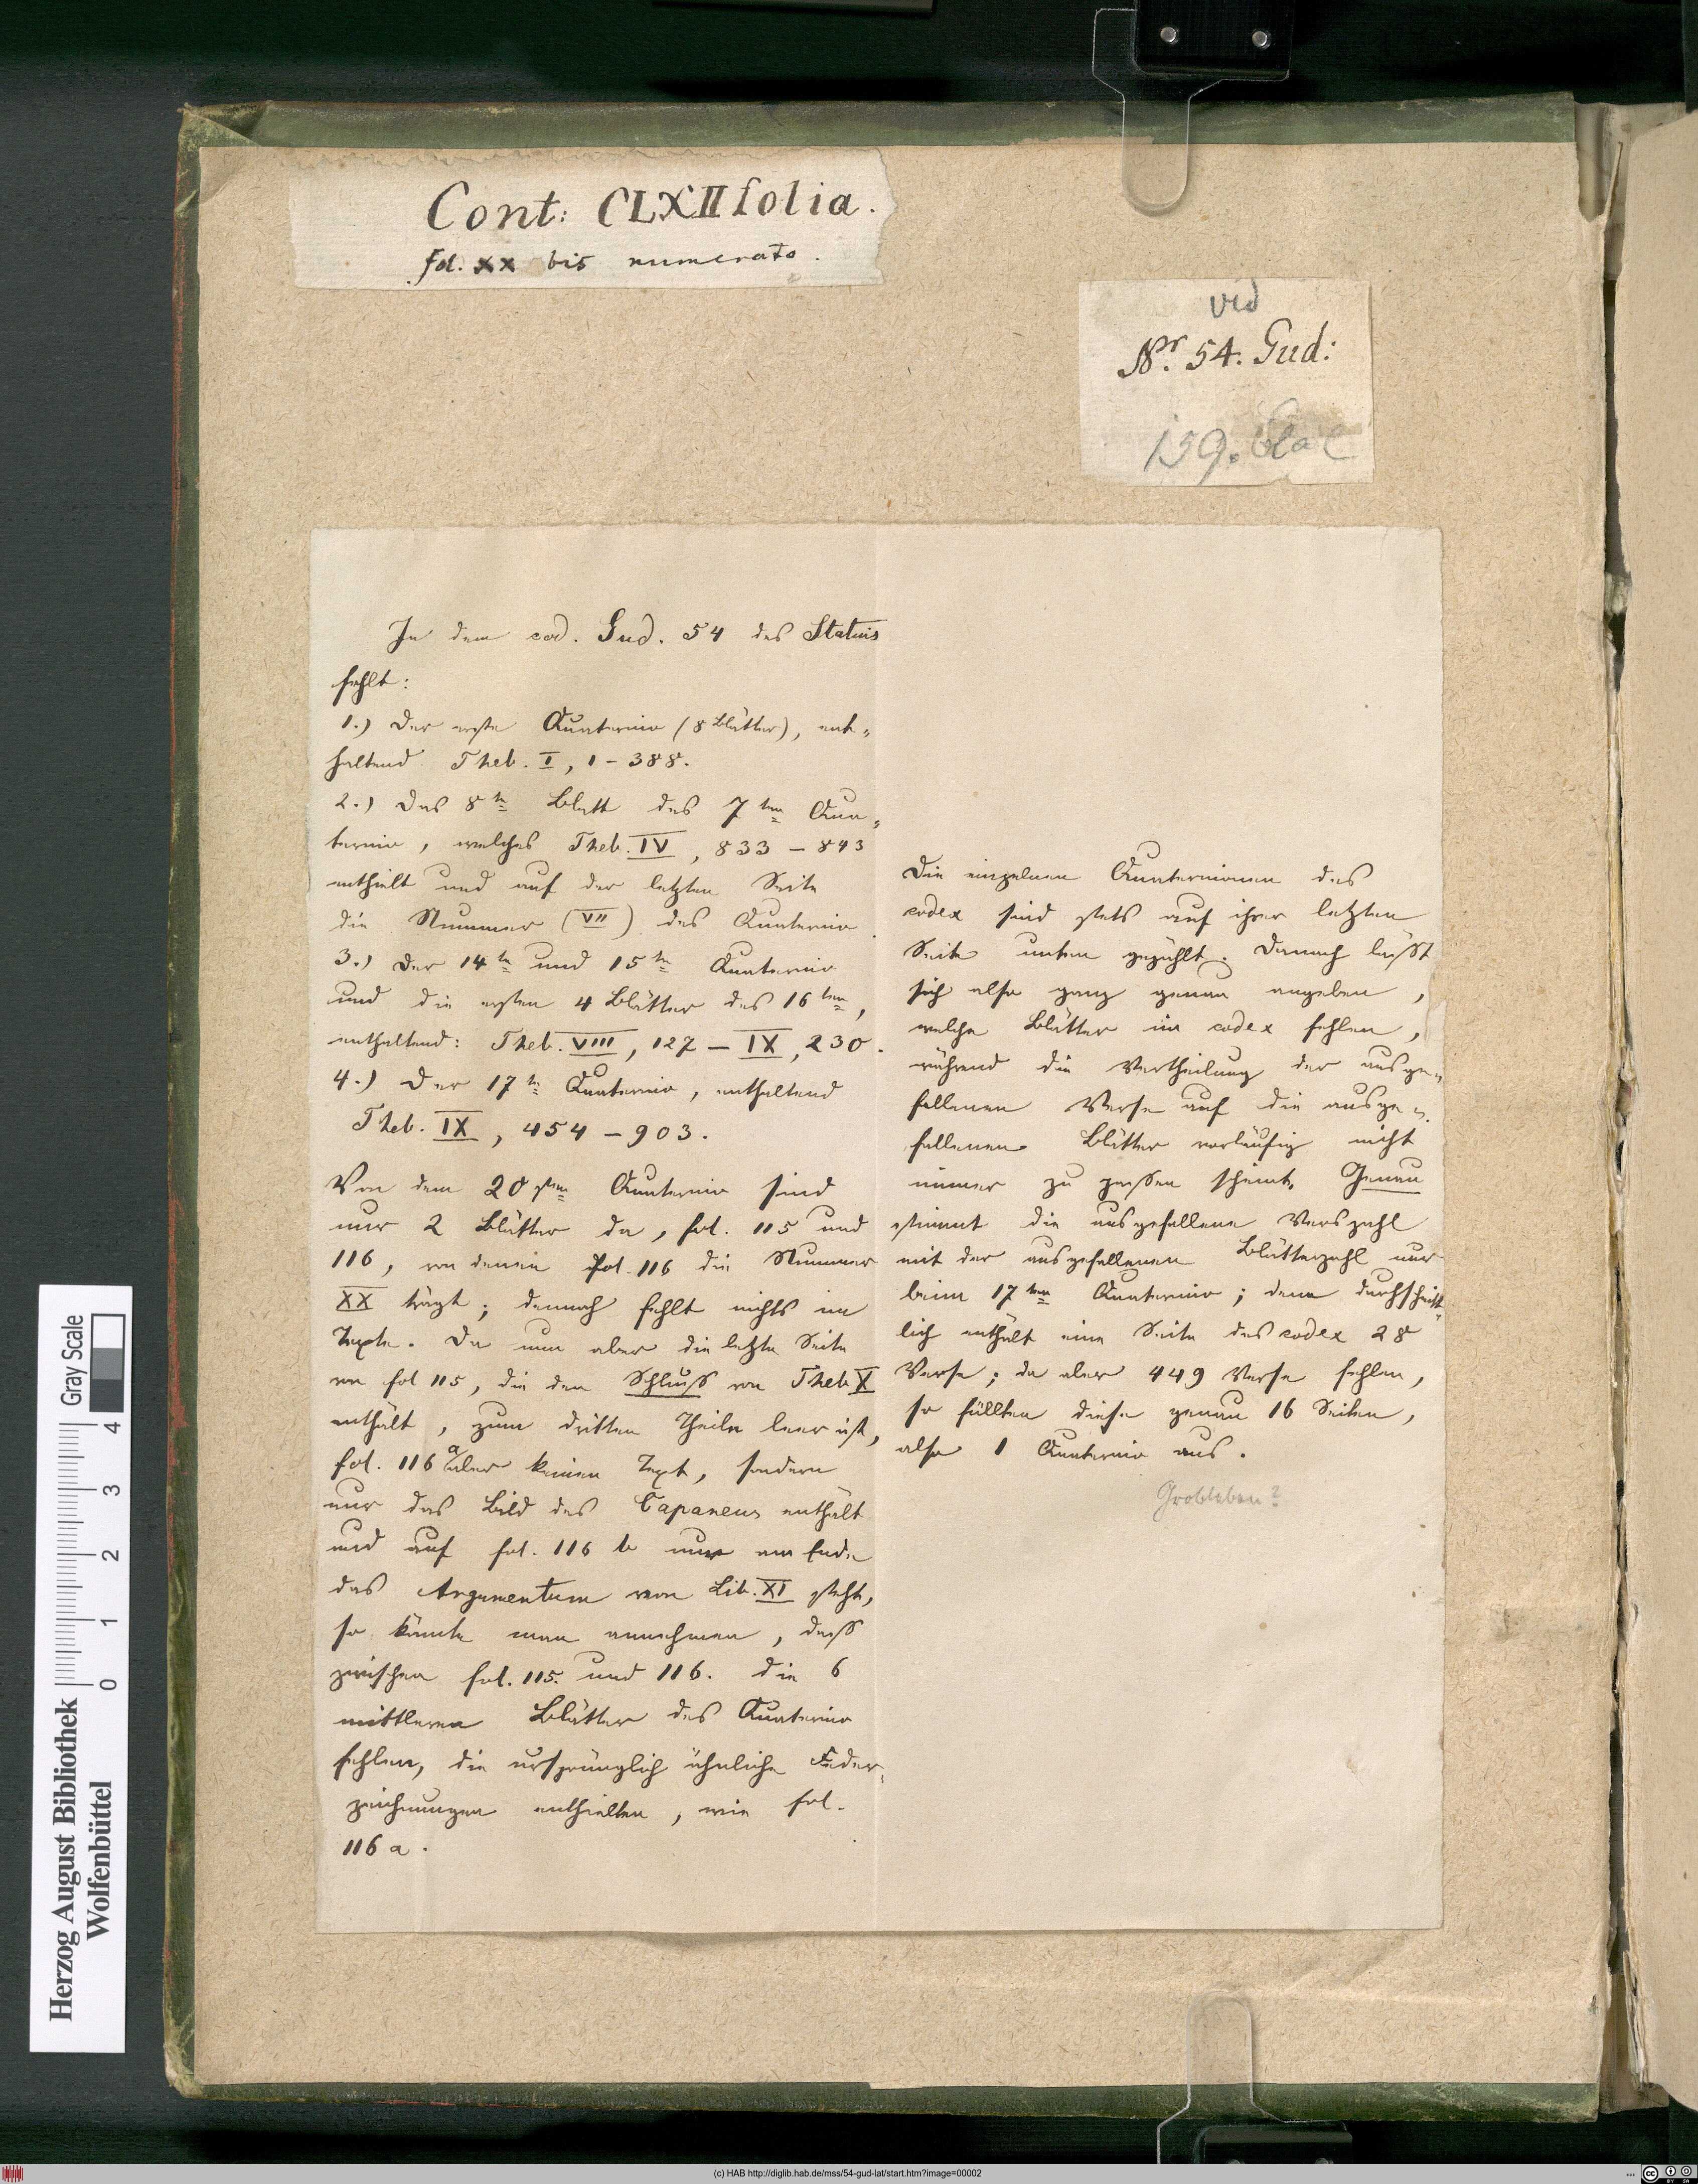 Cont: CLXII folia.
fol. xx bis numerato.
vid
Nr. 54. Gud:
159.
In dem cod. Gud. 54 des Statius
fehlt:
1.) Der erste Quaternio (8 Blätter), ent-
haltend Theb. I, 1-388.
2.) Das 8te Blatt des 7ten Qua-
ternio, welches Theb. IV, 833-843
enthielt und auf der letzten Seite
die Nummer (VII) des Quaternio.
3.) Der 14te und 15te Quaternio
und die ersten 4 Blätter des 16ten,
enthaltend: Theb. VIII, 127 - IX, 230.
4.) Der 17te Quaternio, enthaltend
Theb. IX, 454-903.
Von dem 20sten Quaternio sind
nur 2 Blätter da, fol. 115 und
116, von denen fol. 116 die Nummer
XX trägt; demnach fehlt nichts im
Texte. Da nun aber die letzte Seite
von fol 115, die den Schluss von Theb X
enthält, zum dritten Theile leer ist,
fol. 116 a aber keinen Text, sondern
nur das Bild des Capaneus enthält
und auf fol. 116 b nur am Ende
das Argumentum von Lib. XI steht,
so könnte man annehmen, dass
zwischen fol. 115. und 116. die 6
mittleren Blätter des Quaternio
fehlen, die ursprünglich ähnliche Feder-
zeichnungen enthielten, wie fol.
116 a.
Die einzelnen Quaternionen des
codex sind stets auf ihrer letzten
Seite unten gezählt. Danach lässt
sich also ganz genau angeben,
welche Blätter im codex fehlen,
während die Vertheilung der ausge-
fallenen Verse auf die ausge-
fallenen Blätter vorläufig nicht
immer zu passen scheint. Genau
stimmt die ausgefallene Verszahl
mit der ausgefallenen Blätterzahl nur
beim 17ten Quaternio; denn durchschnitt-
lich enthält eine Seite des codex 28
Verse; da aber 449 Verse fehlen,
so füllten diese genau 16 Seiten,
also 1 Quaternio aus.
Grobleben?
Herzog August Bibliothek
Wolfenbüttel
Gray Scale
0 1 2 3 4
(c) HAB http://diglib.hab.de/mss/54-gud-lat/start.htm?image=00002